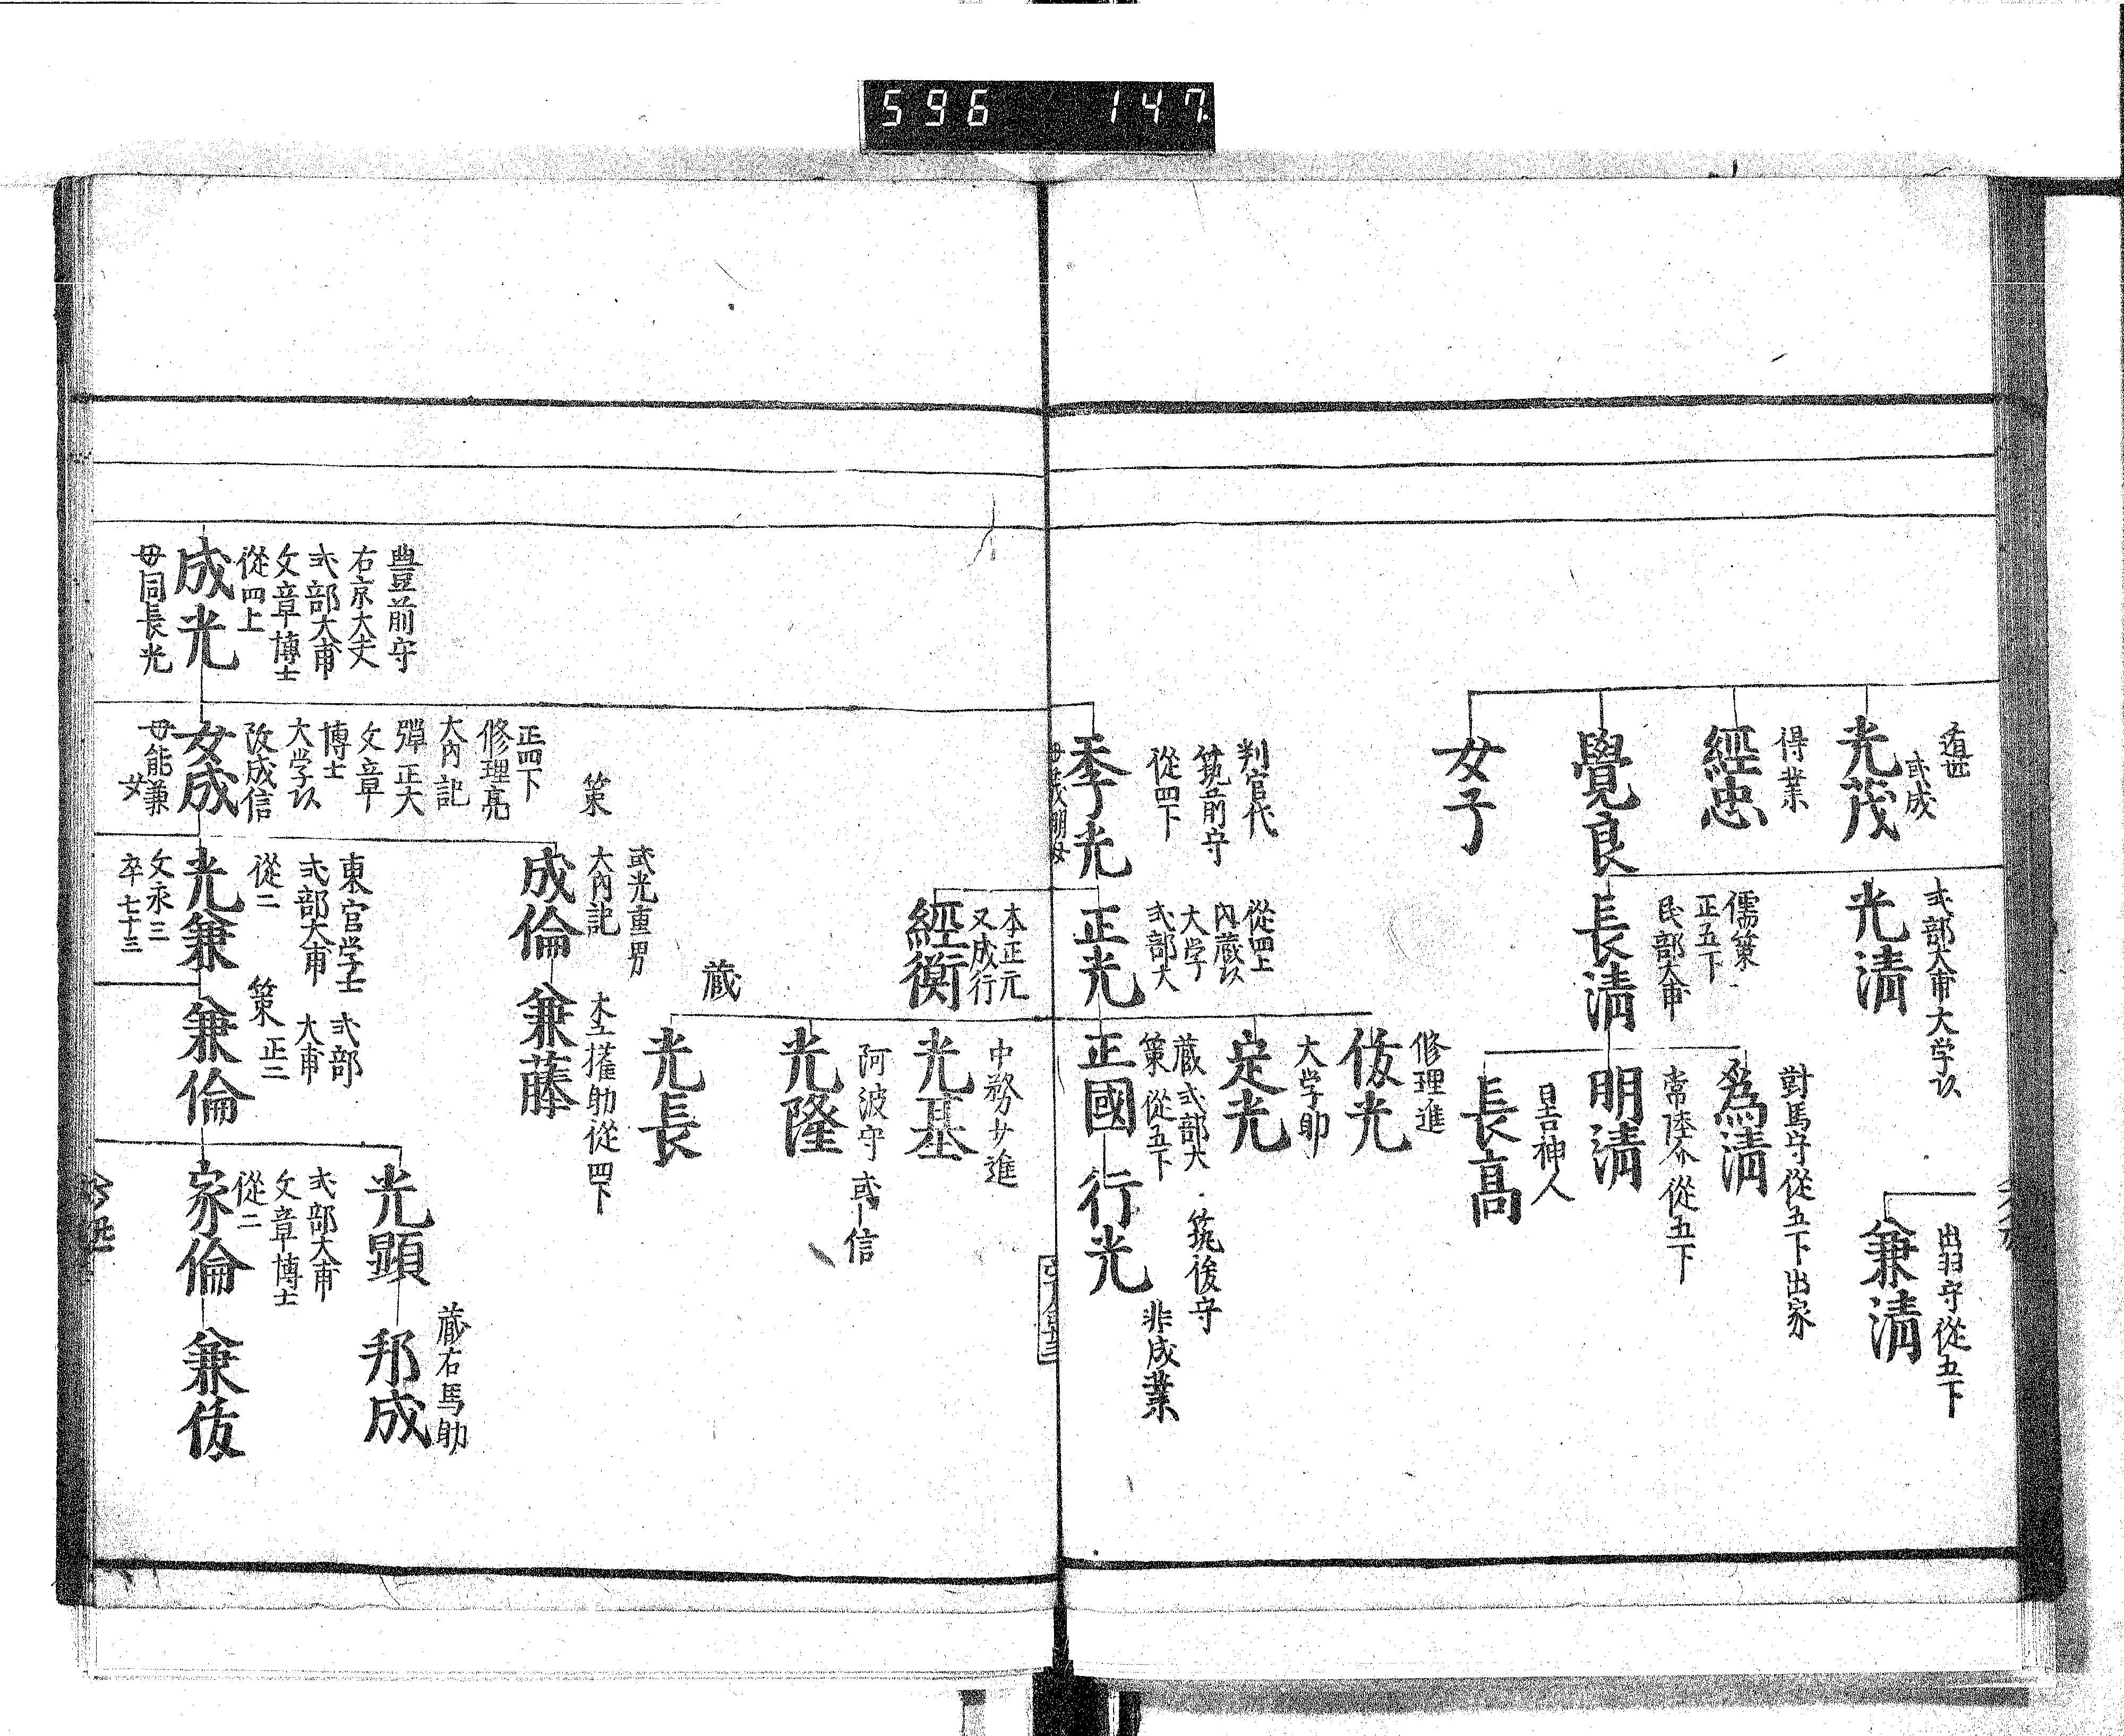 596 147
光茂
或成
經忠
得業
覺良
女子
光清
式部大甫大学以
長清
儒策
正五下
民部大甫
兼清
出羽守從五下
為清
對馬守從五下出家
明清
常陸介從五下
長高
日吉神人
季光
判官代
筑前守
從四下
正光
從四上
內蔵以
大学
式部大
經衡
本正元
又成行
俊光
修理進
定光
大学助
正國
蔵式部大
策從五下
行光
筑後守
非成業
光基
中務少進
光隆
阿波守
或信
光長
蔵
成光
豊前守
右京大夫
式部大甫
文章博士
從四上
母同長光
女成
策
正四下
修理亮
大內記
彈正大
文章
博士
大学以
改成信
母能兼
女
成倫
或光重男
大內記
兼藤
木工権助從四下
光兼
東宮学士
式部大甫
從二
文永三
卒七十三
兼倫
式部
大甫
策正二
光顕
邦成
蔵右馬助
家倫
式部大甫
文章博士
從二
兼俊